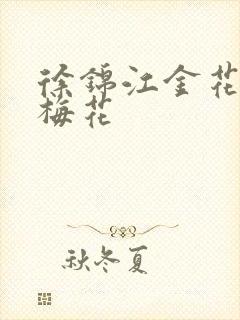 徐锦江金花
梅花
秋冬夏